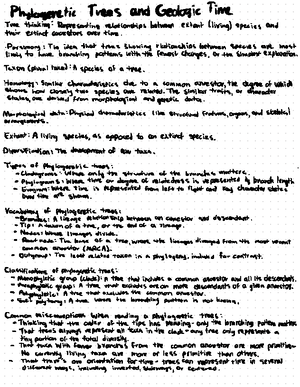 Phylogenetic Trees and Geologic Time
Tree thinking: Representing relationships between extant (living) species and
their extinct ancestors over time.
Parsimony: The idea that trees showing relationships between species are most
likely to have branching patterns with the fewest changes, or the simplest explanation.
Taxon (plural taxa): A species of a tree.
Homology: Similar characteristics due to a common ancestor, the degree of which
shows how closely two species are related. The similar traits, or character
states, are derived from morphological and genetic data.
Morphological data: Physical characteristics like structural features, organs, and skeletal
arrangements.
Extant: A living species, as opposed to an extinct species.
Diversification: The development of new taxa.
Types of phylogenetic trees:
- Cladograms: Where only the structure of the branches matters.
- Phylograms: Where time or degree of relatedness is represented by branch length.
- Where time is represented from left to right and key character states
over time are shown.
Vocabulary of phylogenetic trees:
- Branches: A lineage relationship between an ancestor and descendant.
- Tip: A taxon of a tree, or the end of a lineage.
- Nodes: Where lineages divide.
- Root node: The base of a tree, where the lineages diverged from the most recent
common ancestor (MRCA).
- Outgroup: The least related taxon in a phylogeny, included for contrast.
Classifications of phylogenetic trees:
- Monophyletic group (clade): A tree that includes a common ancestor and all its descendants.
- Paraphyletic group: A tree that excludes one or more descendants of a given ancestor.
- Polyphyletic: A tree that excludes the common ancestor.
- A tree where the branching pattern is not known.
Common misconceptions when reading a phylogenetic trees:
- Thinking that the order of the tips has meaning - only the branching pattern matters.
- That trees always represent all taxa in the clade - they only represent a
tiny portion of the total diversity.
- That taxa with fewer branches from the common ancestor are more primitive -
No currently living taxa are more or less primitive than others.
- That there's one orientation for time - trees can represent time in several
different ways, including inverted, sideways, or centered.